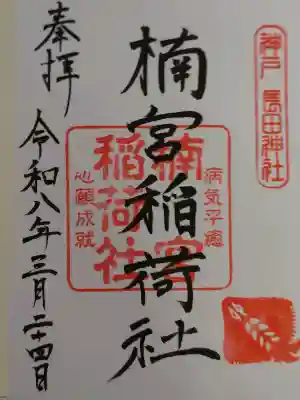 神戸 長田神社
病気平癒
楠宮稲荷社
楠宮稲荷社
心願成就
奉拝
令和八年三月二十四日